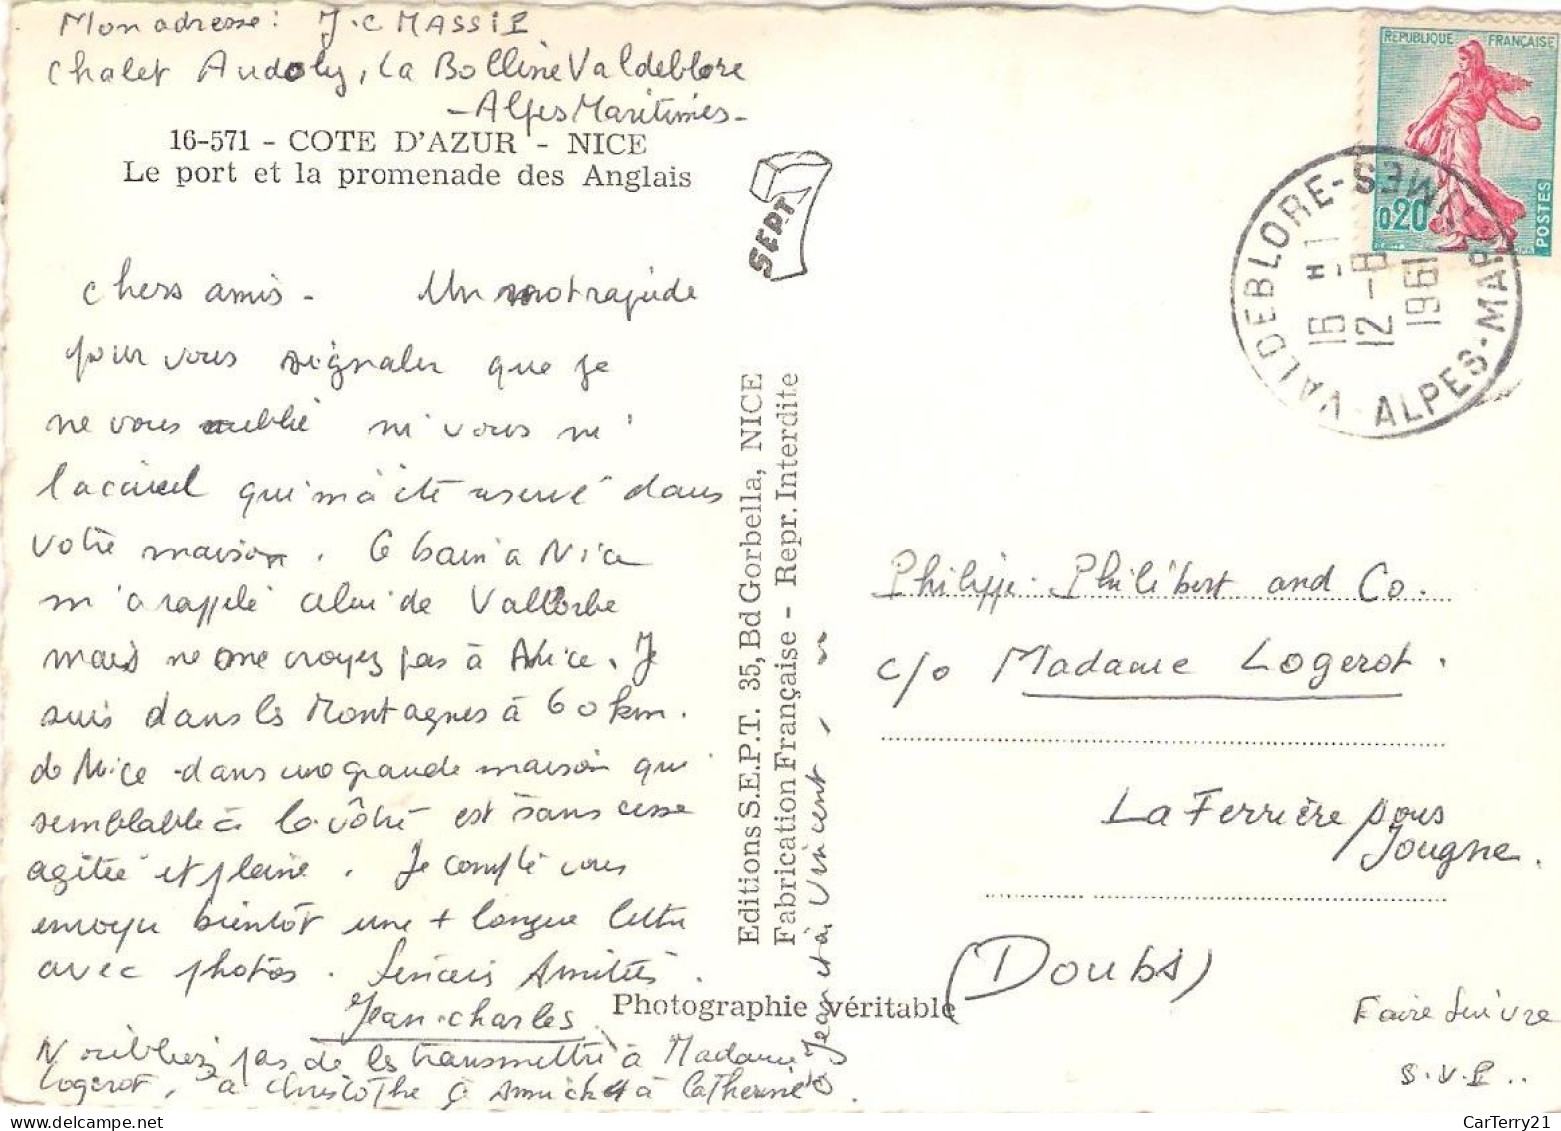 Mon adresse: J.C MASSIE
Chalet Audoly, La Bolline Valdeblore
- Alpes Maritimes -
16-571 - COTE D'AZUR - NICE
Le port et la promenade des Anglais
SEPT
Chers amis - Un mot rapide
pour vous signaler que je
ne vous oublie ni vous ni
l'acceuil qui m'a été reservé dans
votre maison. Le bain a Nice
m'a rappelé celui de Vallorbe
mais ne me croyez pas à Nice. Je
suis dans les Montagnes à 60 km.
de Nice dans une grande maison qui
semblable à la vôtre est sans cesse
agitée et pleine. Je compte vous
envoyer bientôt une + longue lettre
avec photos. Sincères Amitiés.
Jean-Charles
N'oubliez pas de les transmettre à Madame
Logerot, à Christophe à Annick à Catherine
à Jean et à Vincent
Editions S.E.P.T. 35, Bd Gorbella, NICE
Fabrication Française - Repr. Interdite
Photographie véritable
REPUBLIQUE FRANÇAISE
0,20
POSTES
VALDEBLORE - ALPES-MARITIMES
16 H
12 - 8
1961
Philippe Philibert and Co.
c/o Madame Logerot.
La Ferrière sous
Jougne.
(Doubs)
Faire Suivre
S.V.P..
CarTerry21